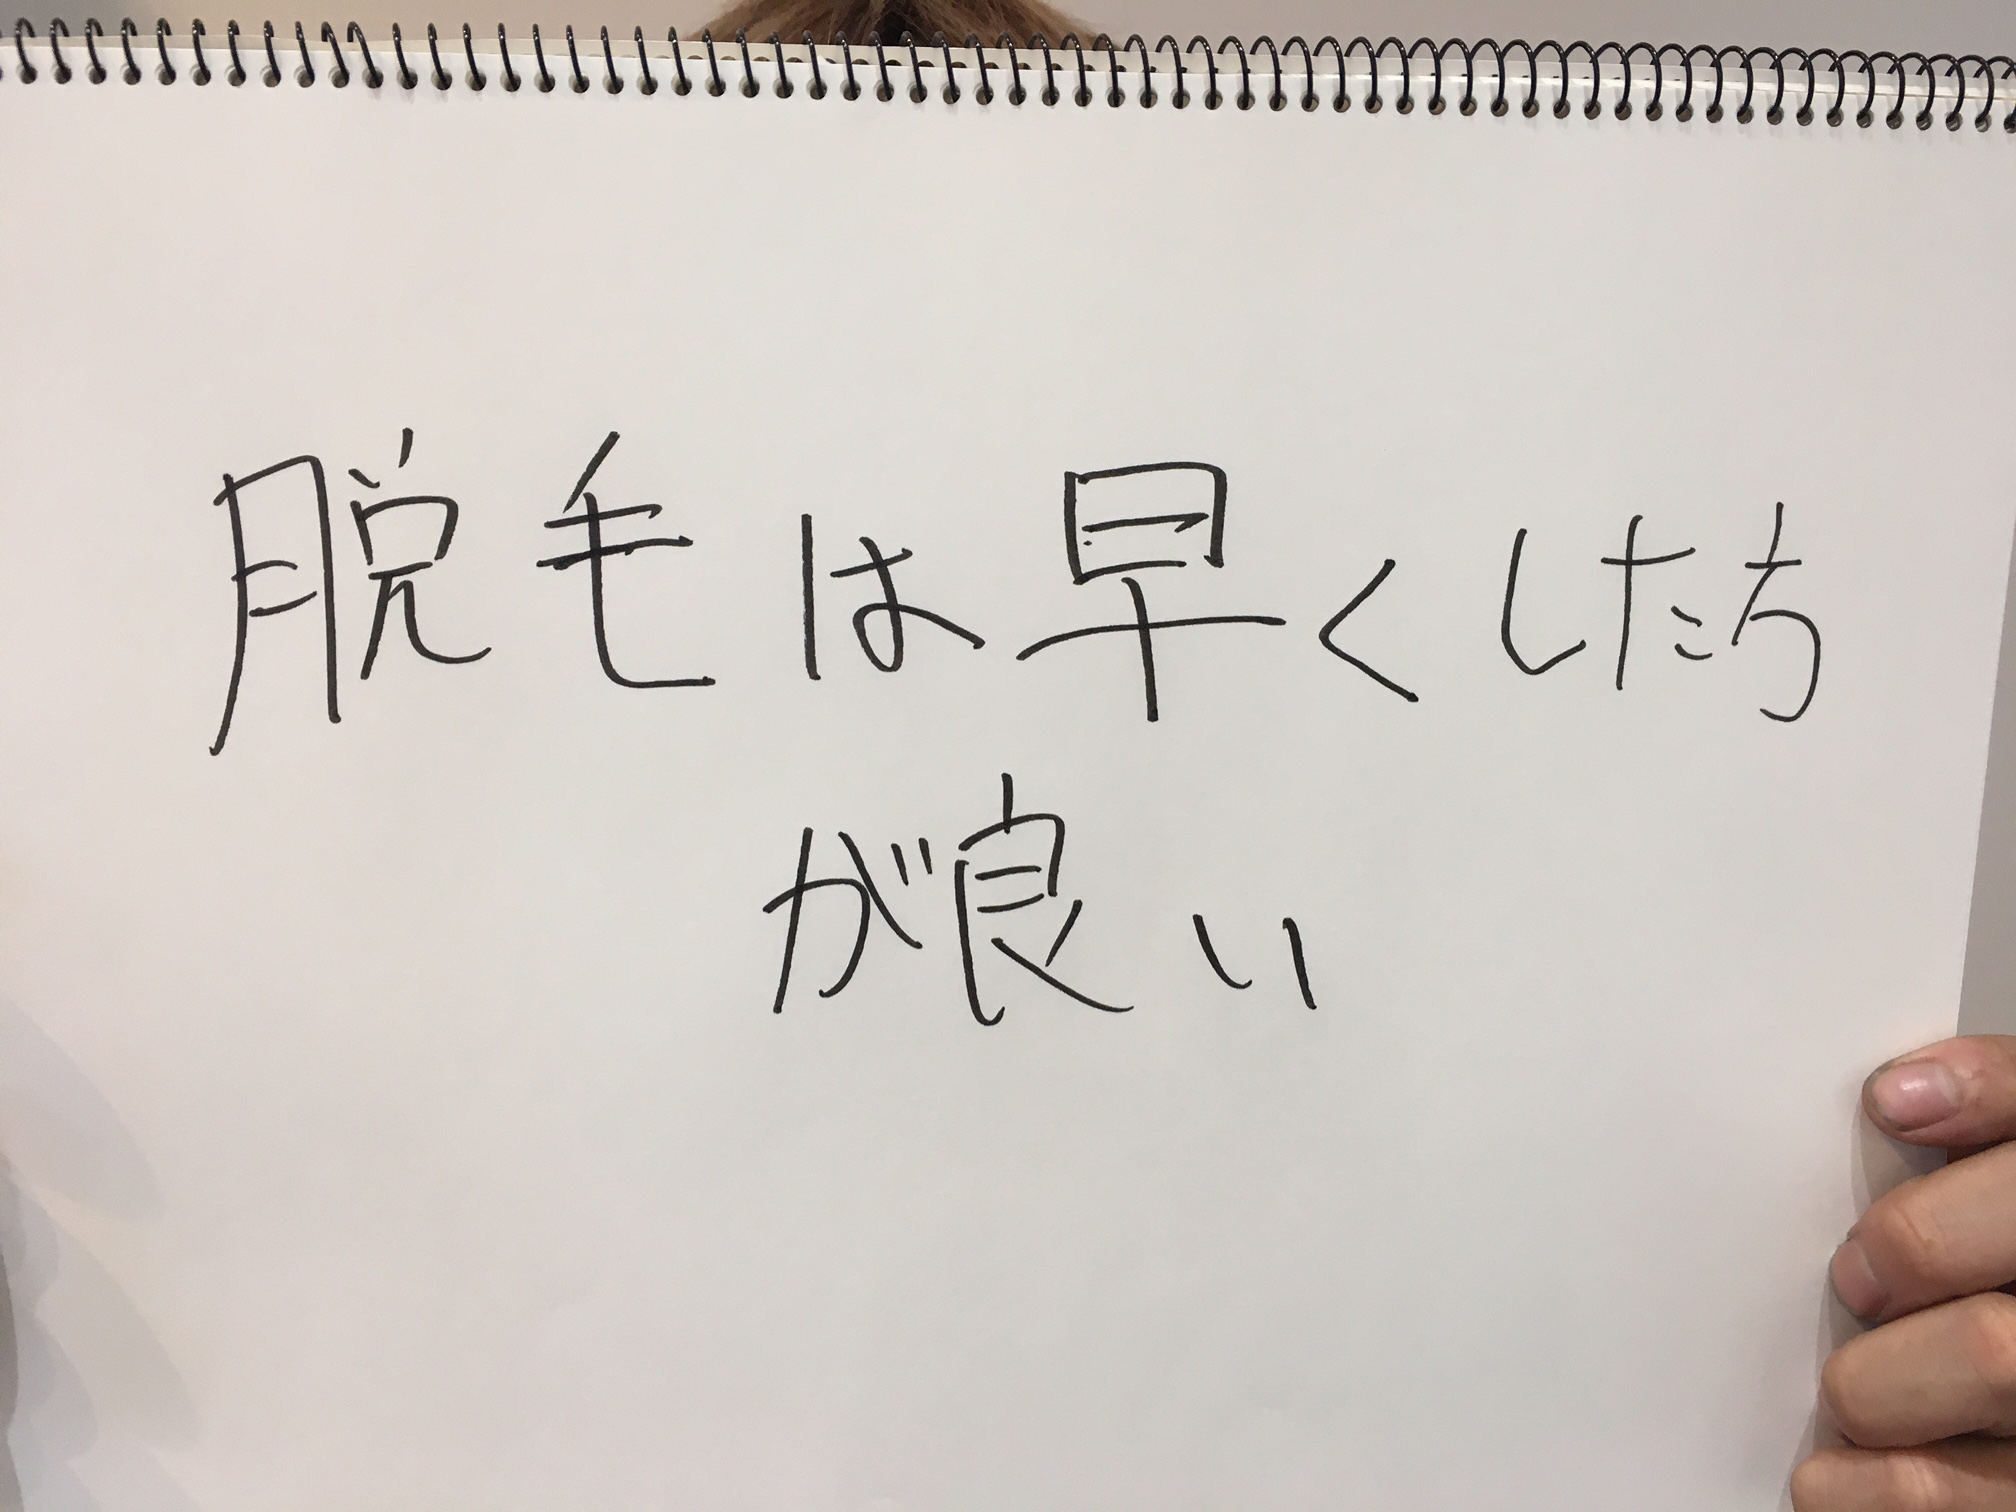 脱毛は早くした方
が良い